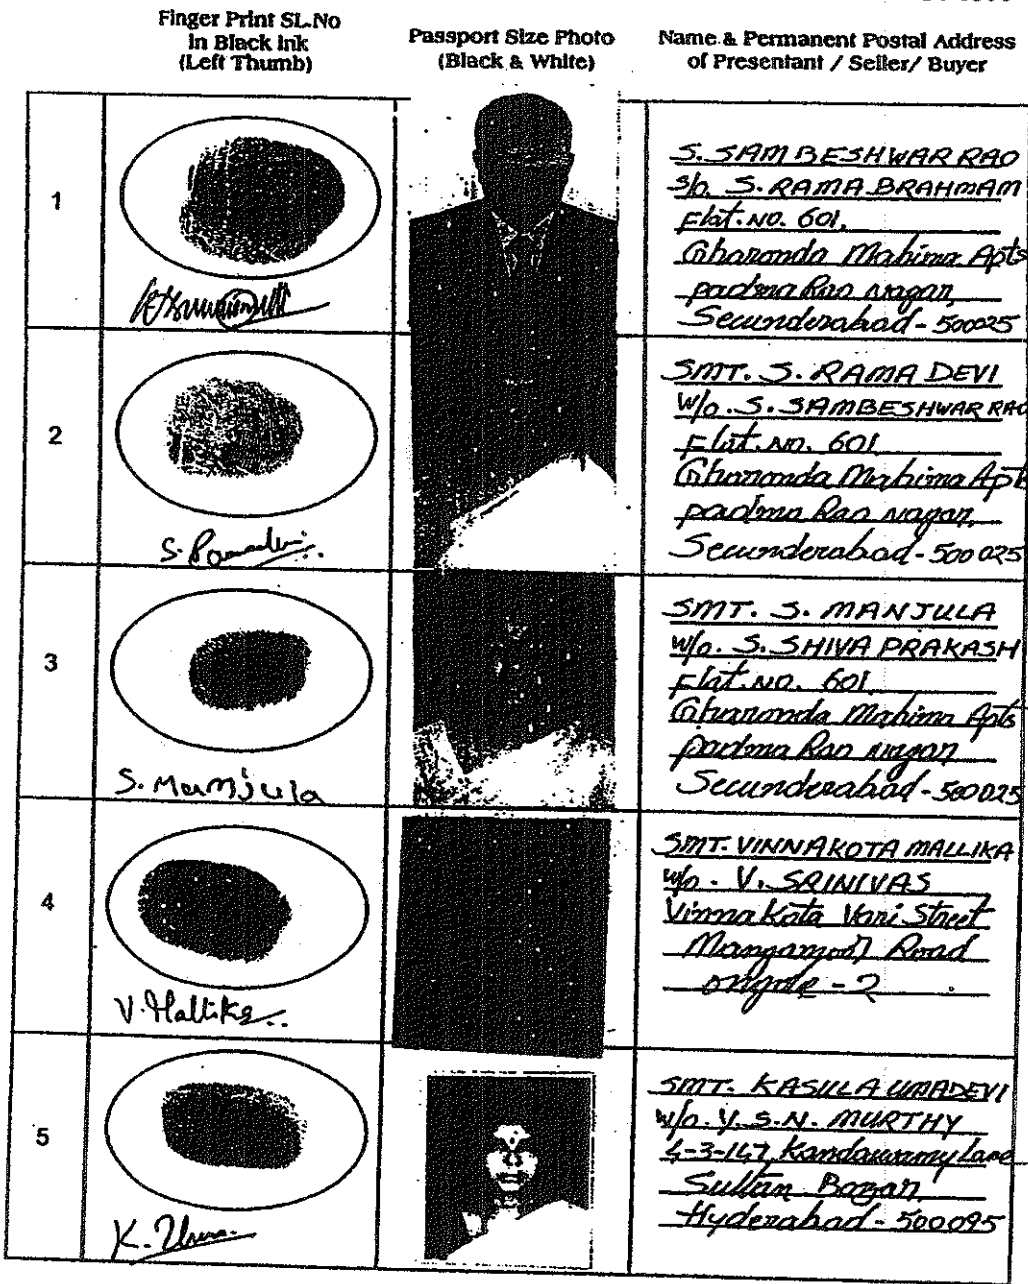 Finger Print SL.No
in Black Ink
(Left Thumb)
Passport Size Photo
(Black & White)
Name & Permanent Postal Address
of Presentant / Seller/ Buyer
1
S. SAMBESHWAR RAO
S/o. S. RAMA BRAHMAM
Flat. NO. 601,
Gharonda Mahima Apts
padma Rao nagar,
Secunderabad - 500025
2
S. Ramadevi
SMT. S. RAMA DEVI
W/o. S. SAMBESHWAR RAO
Flat. NO. 601
Gharonda Mahima Apts
padma Rao nagar,
Secunderabad - 500025
3
S. Manjula
SMT. S. MANJULA
W/o. S. SHIVA PRAKASH
Flat. NO. 601
Gharonda Mahima Apts
padma Rao nagar
Secunderabad - 500025
4
V. Mallika
SMT. VINNAKOTA MALLIKA
W/o. V. SRINIVAS
Vinnakota Vari Street
Mangamoor Road
ongole - 2
5
K. Uma
SMT. KASULA UMADEVI
W/o. Y. S. N. MURTHY
4-3-147, Kandaswamy Lane
Sultan Bazar,
Hyderabad - 500095